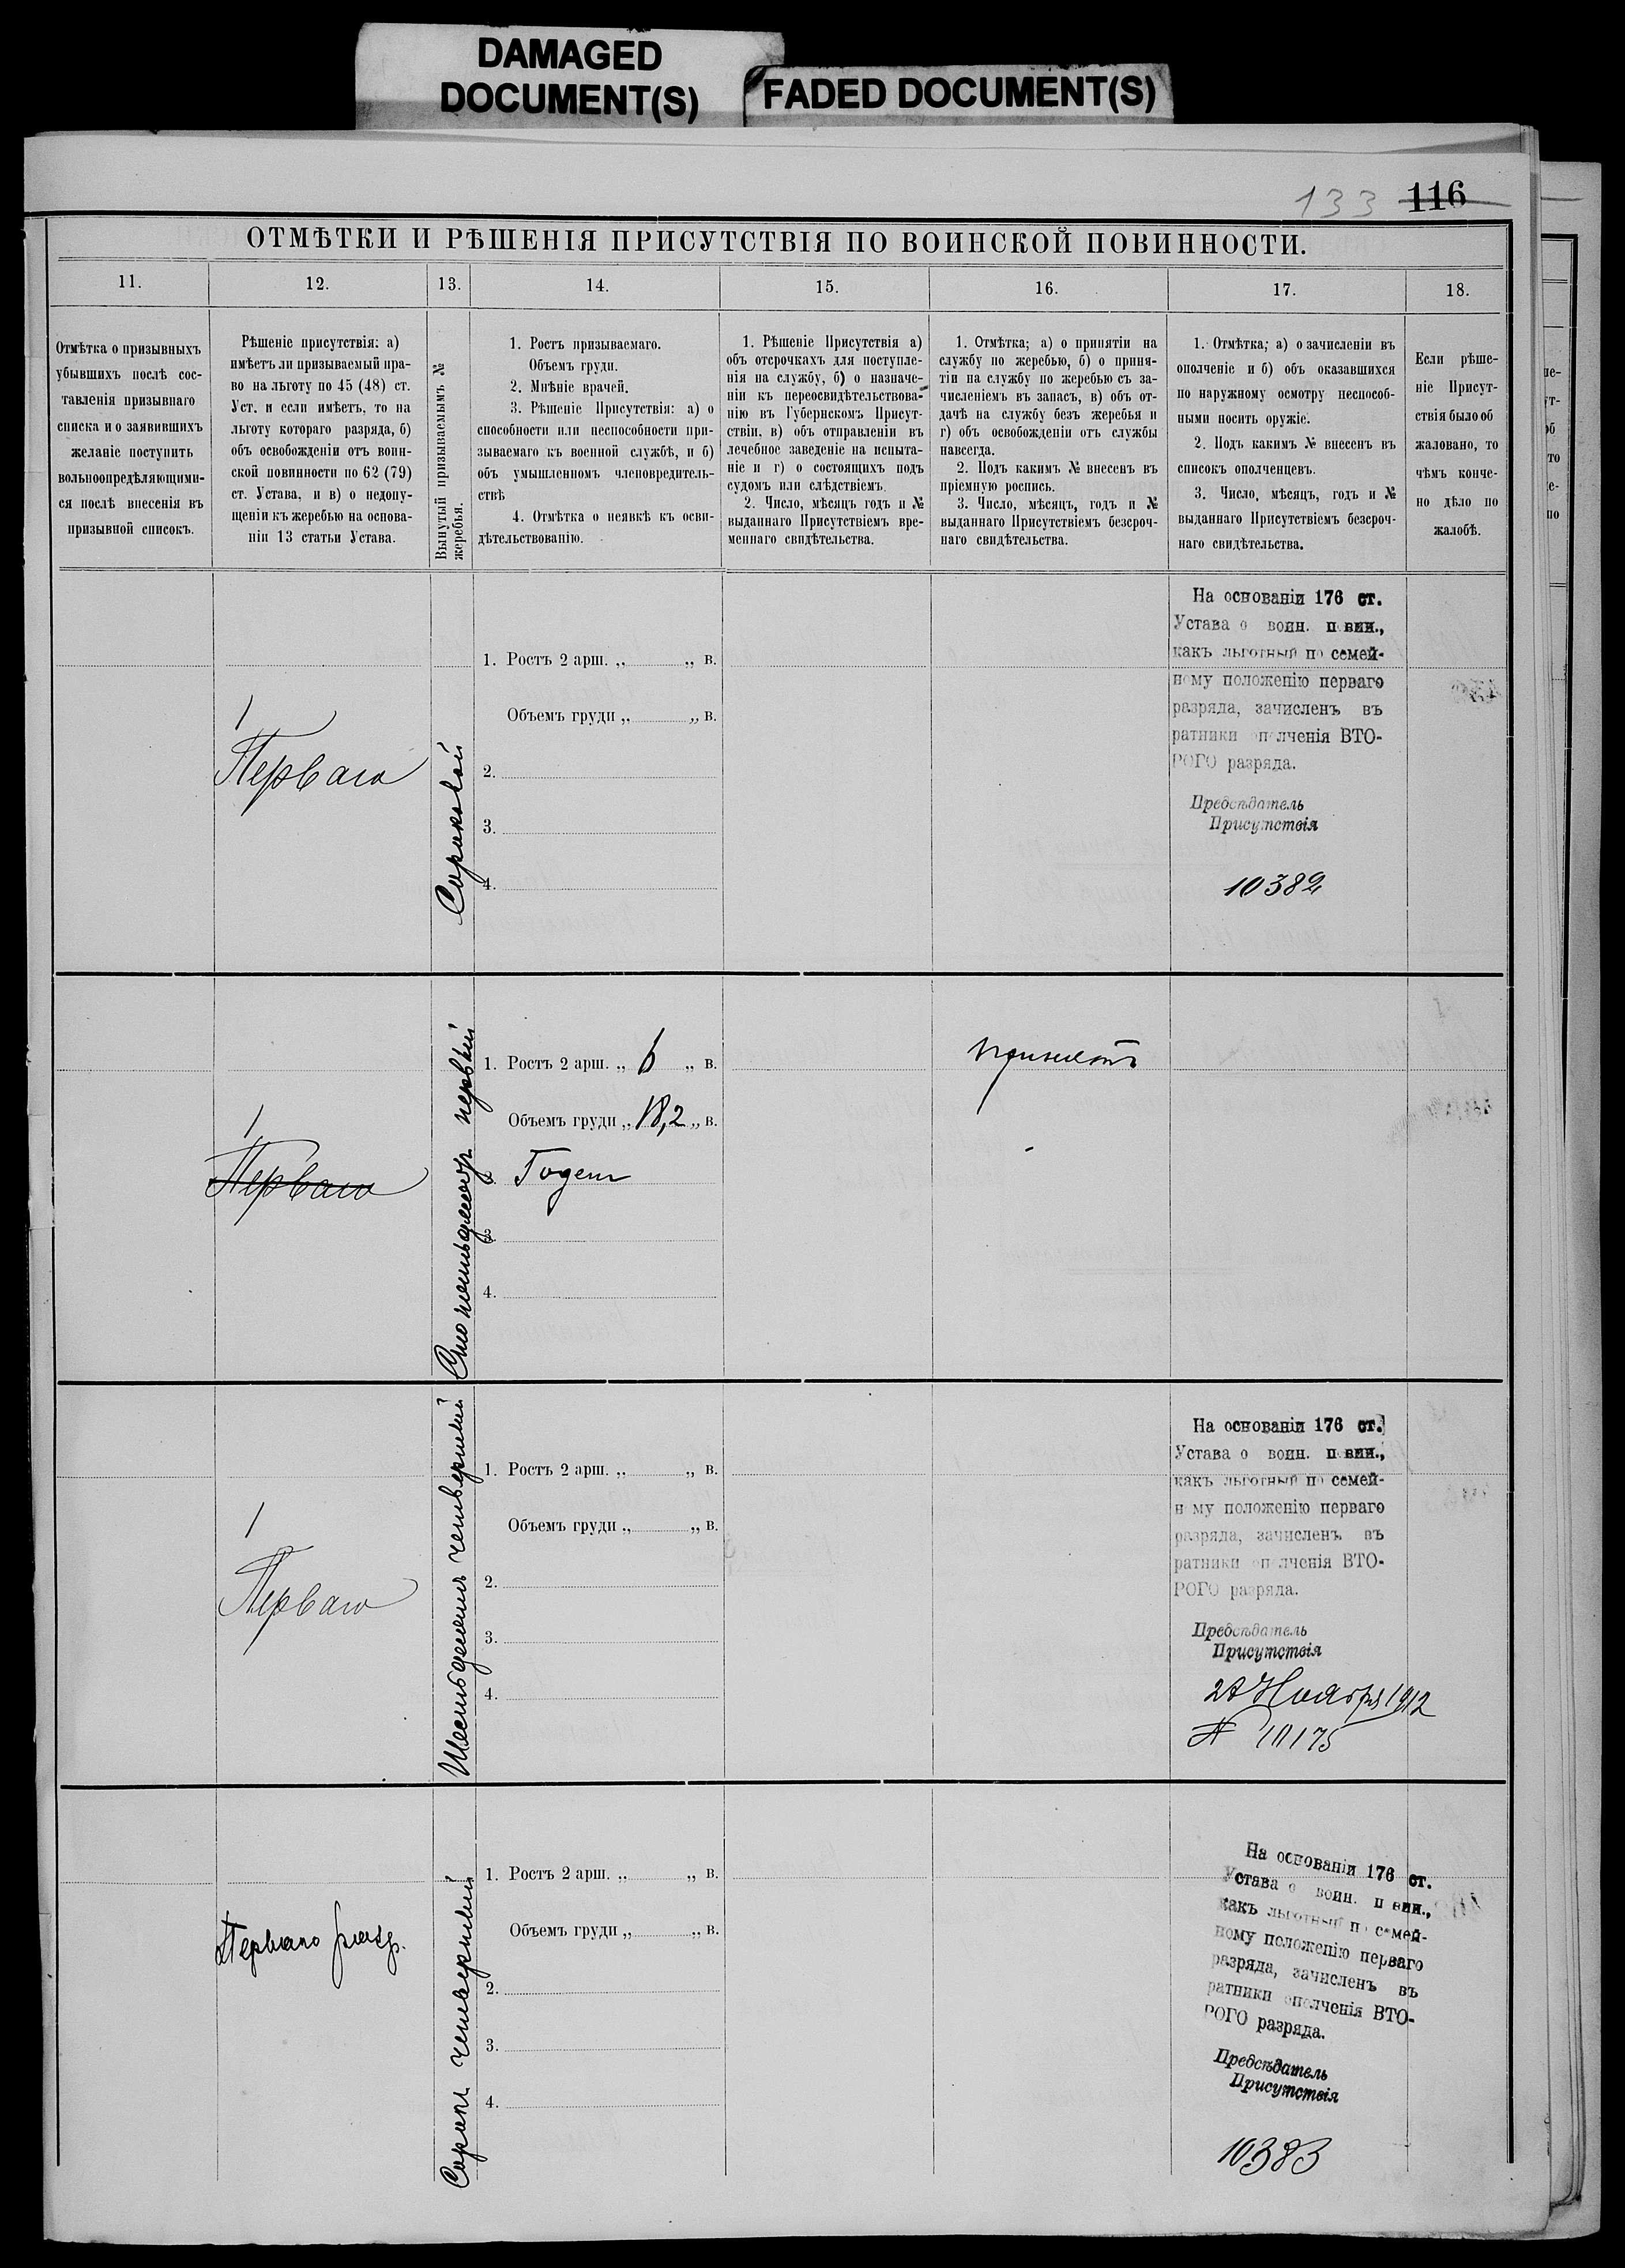 DAMAGED
DOCUMENT(S)
FADED DOCUMENT(S)
133 116
ОТМѢТКИ И РѢШЕНІЯ ПРИСУТСТВІЯ ПО ВОИНСКОЙ ПОВИННОСТИ.
11.
12.
13.
14.
15.
16.
17.
18.
Отмѣтка о призывныхъ
убывшихъ послѣ сос-
тавленія призывнаго
списка и о заявившихъ
желаніе поступить
вольноопредѣляющими-
ся послѣ внесенія въ
призывной списокъ.
Рѣшеніе присутствія: а)
имѣетъ ли призываемый пра-
во на льготу по 45 (48) ст.
Уст. и если имѣетъ, то на
льготу котораго разряда, б)
объ освобожденіи отъ воин-
ской повинности по 62 (79)
ст. Устава, и в) о недопу-
щеніи къ жеребью на основа-
ніи 13 статьи Устава.
Вынутый призываемымъ №
жеребья.
1. Ростъ призываемаго.
Объемъ груди.
2. Мнѣніе врачей.
3. Рѣшеніе Присутствія: а) о
способности или неспособности при-
зываемаго къ военной службѣ, и б)
объ умышленномъ членовредитель-
ствѣ
4. Отмѣтка о неявкѣ къ осви-
дѣтельствованію.
1. Рѣшеніе Присутствія а)
объ отсрочкахъ для поступле-
нія на службу, б) о назначе-
ніи къ переосвидѣтельствова-
нію въ Губернскомъ Присут-
ствіи, в) объ отправленіи въ
лечебное заведеніе на испыта-
ніе и г) о состоящихъ подъ
судомъ или слѣдствіемъ.
2. Число, мѣсяцъ годъ и №
выданнаго Присутствіемъ вре-
меннаго свидѣтельства.
1. Отмѣтка; а) о принятіи на
службу по жеребью, б) о приня-
тіи на службу по жеребью съ за-
численіемъ въ запасъ, в) объ от-
дачѣ на службу безъ жеребья и
г) объ освобожденіи отъ службы
навсегда.
2. Подъ какимъ № внесенъ въ
пріемную роспись.
3. Число, мѣсяцъ, годъ и №
выданнаго Присутствіемъ безсроч-
наго свидѣтельства.
1. Отмѣтка; а) о зачисленіи въ
ополченіе и б) объ оказавшихся
по наружному осмотру неспособ-
ными носить оружіе.
2. Подъ какимъ № внесенъ въ
списокъ ополченцевъ.
3. Число, мѣсяцъ, годъ и №
выданнаго Присутствіемъ безсроч-
наго свидѣтельства.
Если рѣше-
ніе Присут-
ствія было об
жаловано, то
чѣмъ конче-
но дѣло по
жалобѣ.
1
Перваго
Сороковой
1. Ростъ 2 арш. „ „ в.
Объемъ груди „ „ в.
2.
3.
4.
На основаніи 176 ст.
Устава о воин. повин.,
какъ льготный по семей-
ному положенію перваго
разряда, зачисленъ въ
ратники ополченія ВТО-
РОГО разряда.
Предсѣдатель
Присутствія
10382
1
Перваго
Сто пятьдесятъ первый
1. Ростъ 2 арш. „ 6 „ в.
Объемъ груди „ 18,2 „ в.
Годенъ
4.
принятъ
1
Перваго
Шестьдесятъ четвертый
1. Ростъ 2 арш. „ „ в.
Объемъ груди „ „ в.
2.
3.
4.
На основаніи 176 ст.
Устава о воин. повин.,
какъ льготный по семей-
ному положенію перваго
разряда, зачисленъ въ
ратники ополченія ВТО-
РОГО разряда.
Предсѣдатель
Присутствія
Ноября 1912
№ 10175
Перваго разр.
Сорокъ четвертый
1. Ростъ 2 арш. „ „ в.
Объемъ груди „ „ в.
2.
3.
4.
На основаніи 176 ст.
Устава о воин. повин.,
какъ льготный по семей-
ному положенію перваго
разряда, зачисленъ въ
ратники ополченія ВТО-
РОГО разряда.
Предсѣдатель
Присутствія
10383